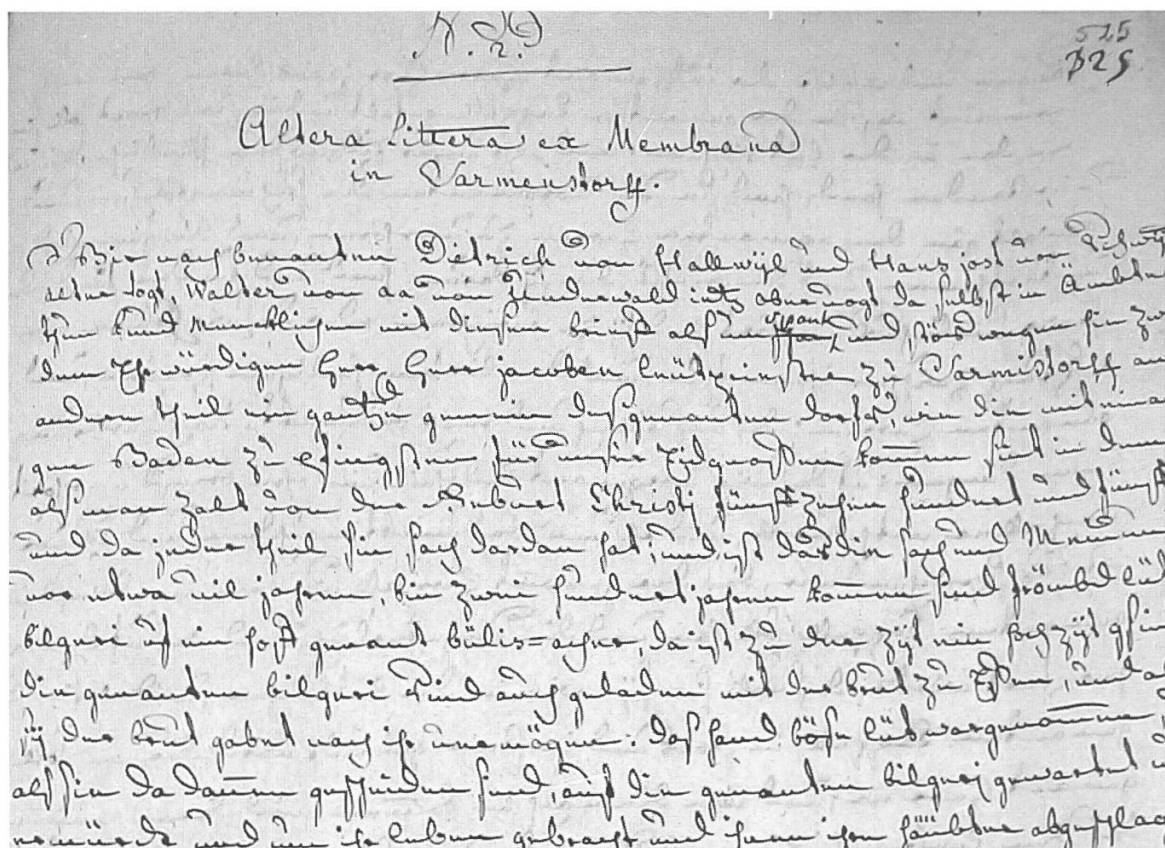 N. 2.
525
325
Altera Littera ex Membrana
in Sarmenstorff.
Wir nach benanten Dietrich von Hallwyl und Hans jost von
alter vogt, Walter von aa von Underwald jetz aber vogt da selbst in Ämbter
thun kund Menklichen mit disem brieff als span und stöß wegen sin zwü
dem Ehrwürdigen Herr Herr jacoben lüütpriester zu Sarmistorff an
andren theil ein gantzen gemein deß genanten dorfs, wie die mit
gen Baden zu pfingsten für unser Eydgnossen kommen sint in dem
alß man zalt von der Geburt Christj fünffzechen hundert und fünff
und da jeder theil sin sach dardan hat, und ist das die sach und Meinun
vor etwa vil jahren, bin zwei hundert jahren kommen sind frömbd lüt
bilgeri uf ein hoff genant bülis=acher, da ist zu der zyt ein hochzyt gsin
die genanten bilgeri sind auch geladen mit der brut zu Essen, und
der brut gabet nach ihr vermögen. das hand böse lüt wargenommen,
alß sie da dannen gescheiden sind, auf die genanten bilgerj gewartet
ermürdt und um ihr leben gebracht und ihnen ihre häübter abgeschlag